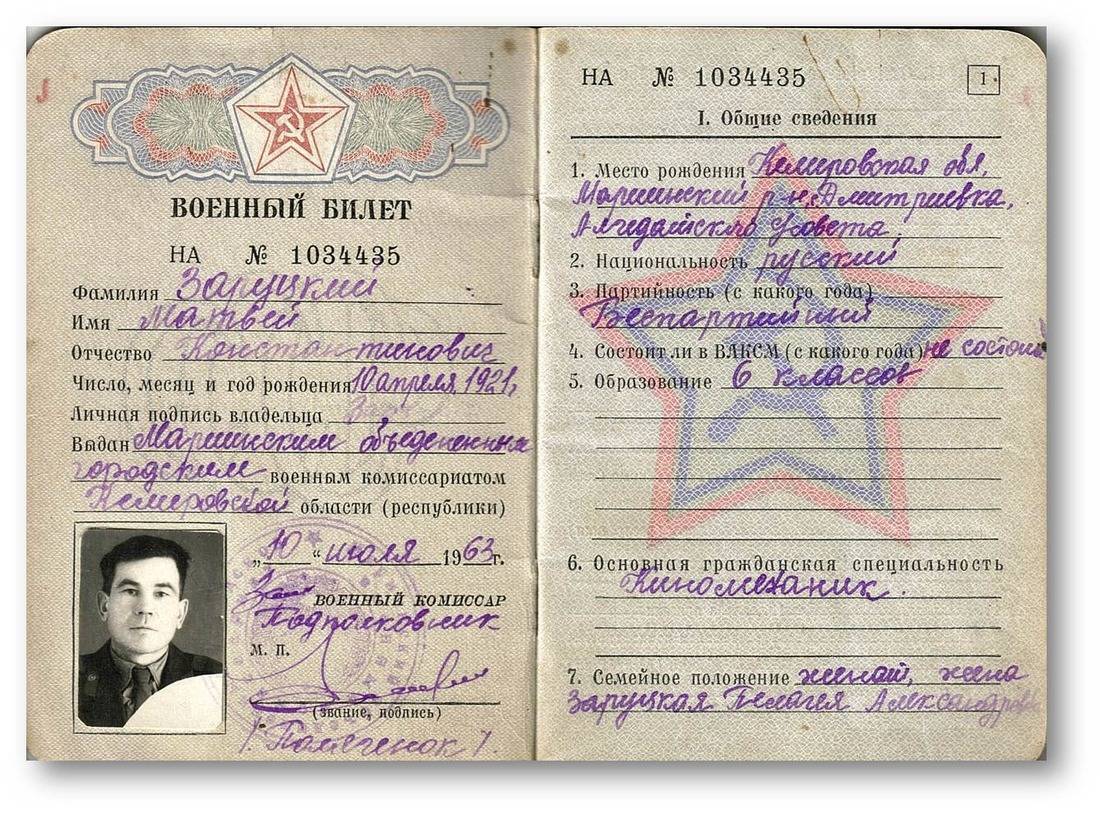 ВОЕННЫЙ БИЛЕТ
НА № 1034435
Фамилия Заруцкий
Имя Матвей
Отчество Константинович
Число, месяц и год рождения 10 апреля 1921,
Личная подпись владельца
Выдан Мариинским объедененным
городским военным комиссариатом
Кемеровской области (республики)
„10“ июля 1963 г.
ВОЕННЫЙ КОМИССАР
Подполковник
М. П.
(звание, подпись)
НА № 1034435
1
I. Общие сведения
1. Место рождения Кемеровская обл,
Мариинский р-н, Дмитриевка,
2. Национальность русский
3. Партийность (с какого года)
Беспартийный
4. Состоит ли в ВЛКСМ (с какого года) не состоял
5. Образование 6 классов
6. Основная гражданская специальность
Киномеханик.
7. Семейное положение женат, жена
Заруцкая Пелагея Александровна